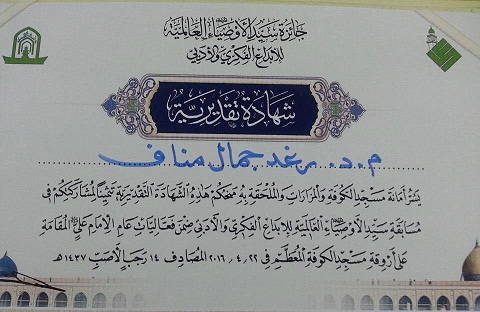 جائزة سيد الأوصياء العالمية
للإبداع الفكري والأدبي
شهادة تقديرية
م.د. رغد جمال مناف
يسر أمانة مسجد الكوفة والمزارات الملحقة به منحكم هذه الشهادة التقديرية تثمينا لمشاركتكم في
مسابقة سيد الأوصياء العالمية للإبداع الفكري والأدبي ضمن فعاليات عام الإمام علي المقامة
على أروقة مسجد الكوفة المعظم في ٢٠١٦/٤/٢٢ المصادف ١٤ رجب الأصب ١٤٣٧هـ